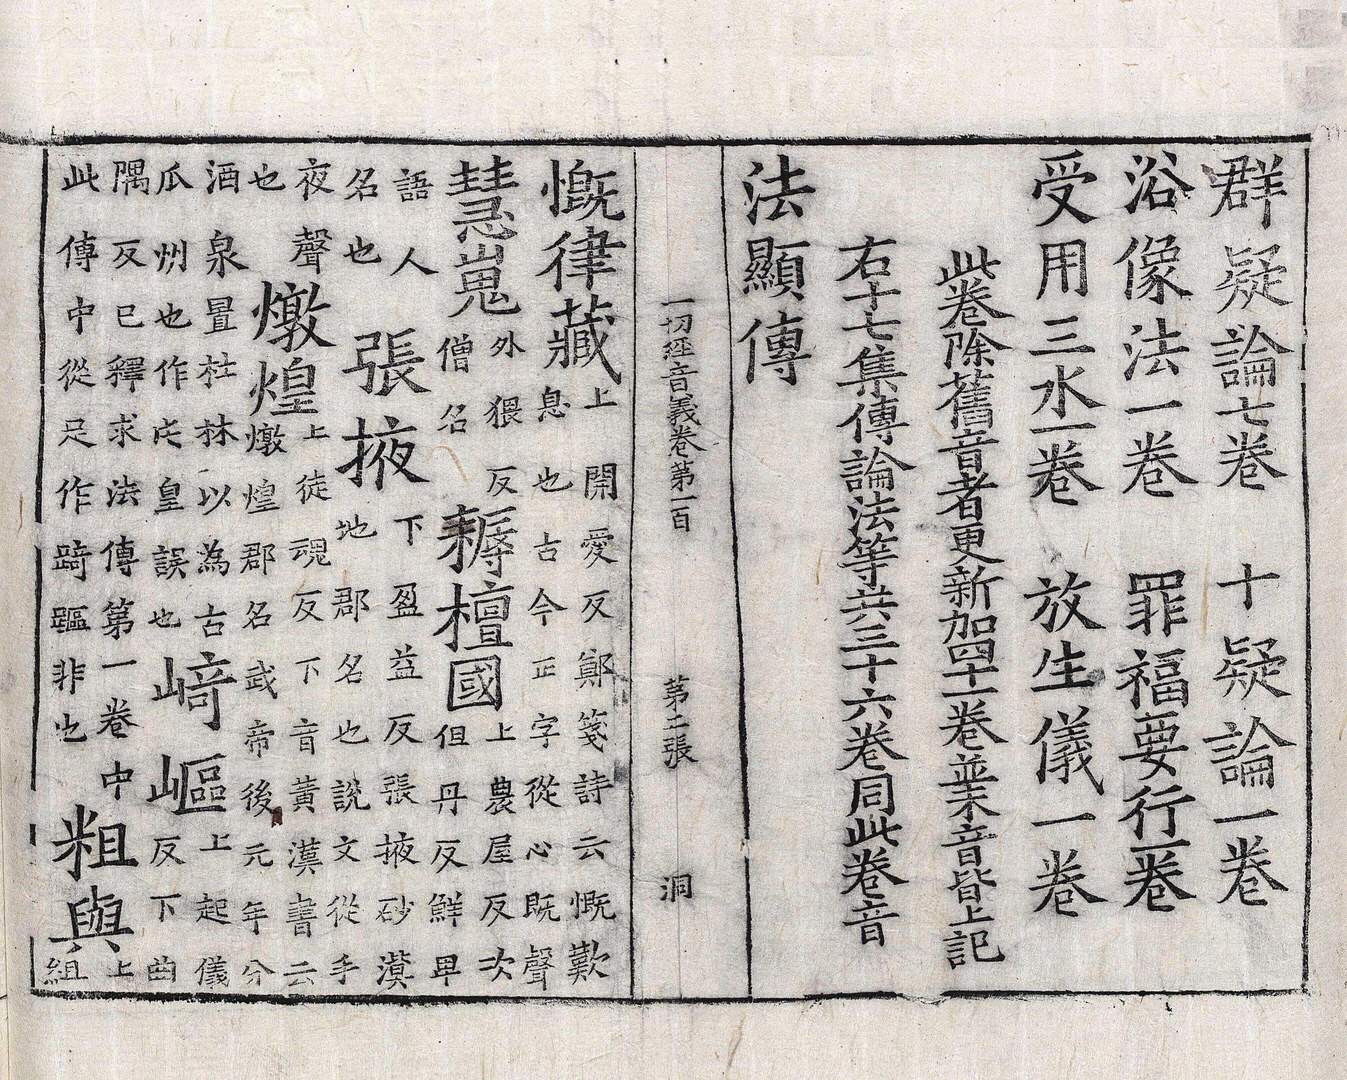 群疑論七卷 十疑論一卷
浴像法一卷 罪福要行一卷
受用三水一卷 放生儀一卷
此卷除舊音者更新加四十一卷並未音皆上記
右十七集傳論法等共三十六卷同此卷音
法顯傳
一切經音義卷第一百 第二張 洞
慨律藏上開愛反鄭箋詩云慨歎息也古今正字從心既聲
慧嵬外猥反僧名 耨檀國上農屋反次但丹反鮮卑
語人名也 張掖下盈益反張掖砂漠地郡名也說文從手
夜聲也 燉煌上徒魂反下音黃漢書云燉煌郡名武帝後元年分
酒泉置杜林以為古瓜州也作皇誤也 崎嶇上起儀反下曲
隅反已釋求法傳第一卷中此傳中從足作踦䠓非也 粗與上組